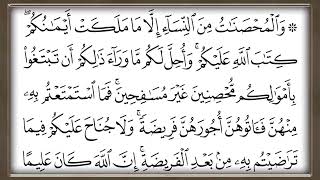 ۞ وَٱلْمُحْصَنَٰتُ مِنَ ٱلنِّسَآءِ إِلَّا مَا مَلَكَتْ أَيْمَٰنُكُمْ ۖ
كِتَٰبَ ٱللَّهِ عَلَيْكُمْ ۚ وَأُحِلَّ لَكُم مَّا وَرَآءَ ذَٰلِكُمْ أَن تَبْتَغُوا۟
بِأَمْوَٰلِكُم مُّحْصِنِينَ غَيْرَ مُسَٰفِحِينَ ۚ فَمَا ٱسْتَمْتَعْتُم بِهِۦ
مِنْهُنَّ فَـَٔاتُوهُنَّ أُجُورَهُنَّ فَرِيضَةً ۚ وَلَا جُنَاحَ عَلَيْكُمْ فِيمَا
تَرَٰضَيْتُم بِهِۦ مِنۢ بَعْدِ ٱلْفَرِيضَةِ ۚ إِنَّ ٱللَّهَ كَانَ عَلِيمًا